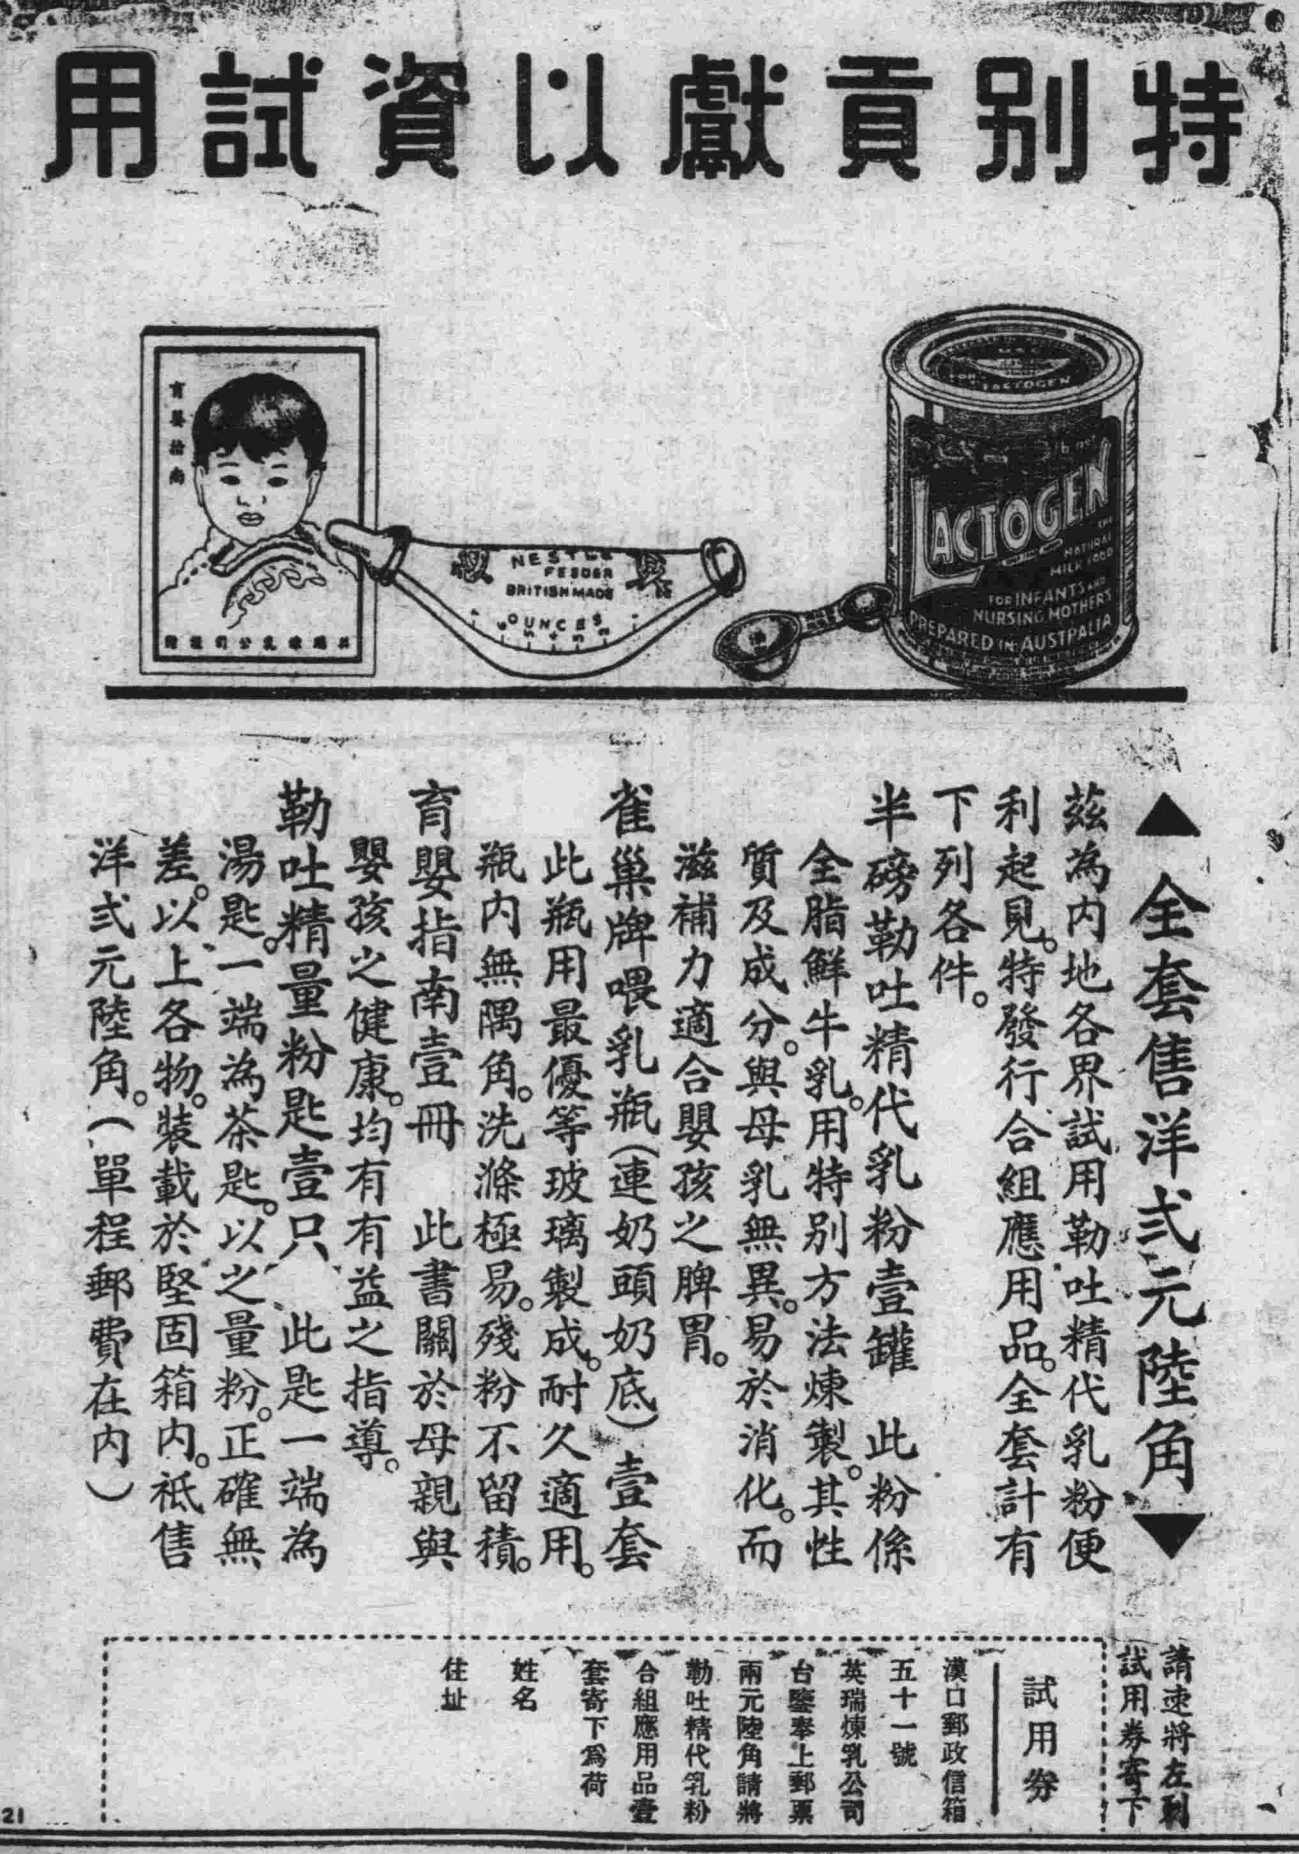 特別貢獻以資試用
育嬰指南
英瑞煉乳公司
NESTLE
FEEDER
BRITISH MADE
OUNCES
LACTOGEN
LACTOGEN
NATURAL
MILK FOOD
FOR INFANTS AND
NURSING MOTHERS
PREPARED IN AUSTRALIA
▲全套售洋弍元陸角▼
茲為內地各界試用勒吐精代乳粉便
利起見。特發行合組應用品。全套計有
下列各件。
半磅勒吐精代乳粉壹罐 此粉係
全脂鮮牛乳。用特別方法煉製。其性
質及成分。與母乳無異。易於消化。而
滋補力適合嬰孩之脾胃。
雀巢牌喂乳瓶(連奶頭奶底)壹套
此瓶用最優等玻璃製成。耐久適用。
瓶內無隅角。洗滌極易。殘粉不留積。
育嬰指南壹冊 此書關於母親與
嬰孩之健康。均有有益之指導。
勒吐精量粉匙壹只 此匙一端為
湯匙。一端為茶匙。以之量粉。正確無
差。以上各物。裝載於堅固箱內。祗售
洋弍元陸角。(單程郵費在內)
請速將左列
試用券寄下
試用券
漢口郵政信箱
五十一號
英瑞煉乳公司
台鑒奉上郵票
兩元陸角請將
勒吐精代乳粉
合組應用品壹
套寄下為荷
姓名
住址
21